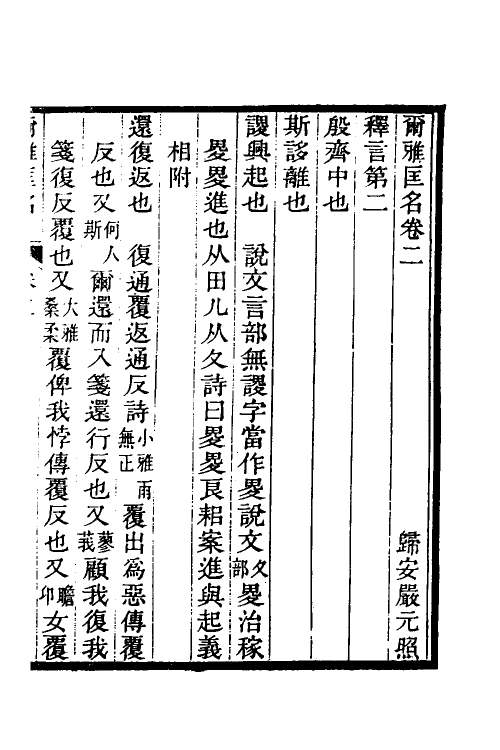 爾雅匡名卷二
歸安嚴元照
釋言第二
殷齊中也
斯誃離也
謖興起也　說文言部無謖字當作畟說文夂部畟治稼
畟畟進也从田儿从夂詩曰畟畟良耜案進與起義
相附
還復返也　復通覆返通反詩小雅雨無正覆出爲惡傳覆
反也又何人斯爾還而入箋還行反也又蓼莪顧我復我
箋復反覆也又大雅桑柔覆俾我悖傳覆反也又瞻卬女覆